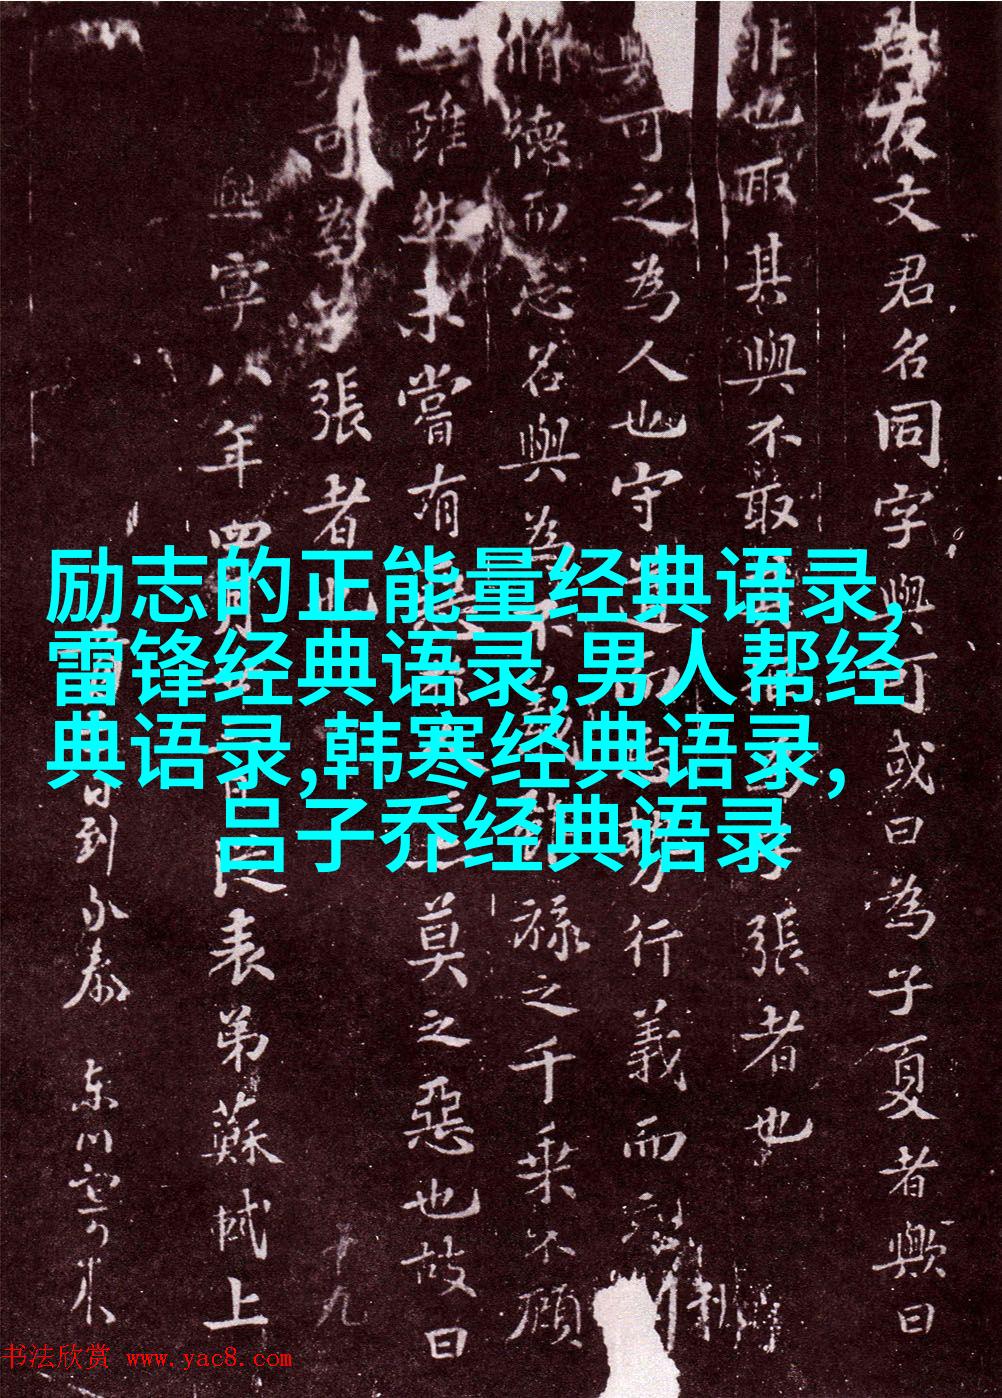 吾友文君名同字與可或曰為子夏者歟曰
非也取其與不取
張者也
與可之為人也守
行義而忘
脩德而忘名與為
祿之千乘不顧
雖然未嘗有
莫之惡也故曰
與可為子張者也
熙寧八年四月
從表弟蘇軾上
十九
励志的正能量经典语录,
雷锋经典语录,男人帮经
典语录,韩寒经典语录,
吕子乔经典语录
书法欣赏 www.yac8.com